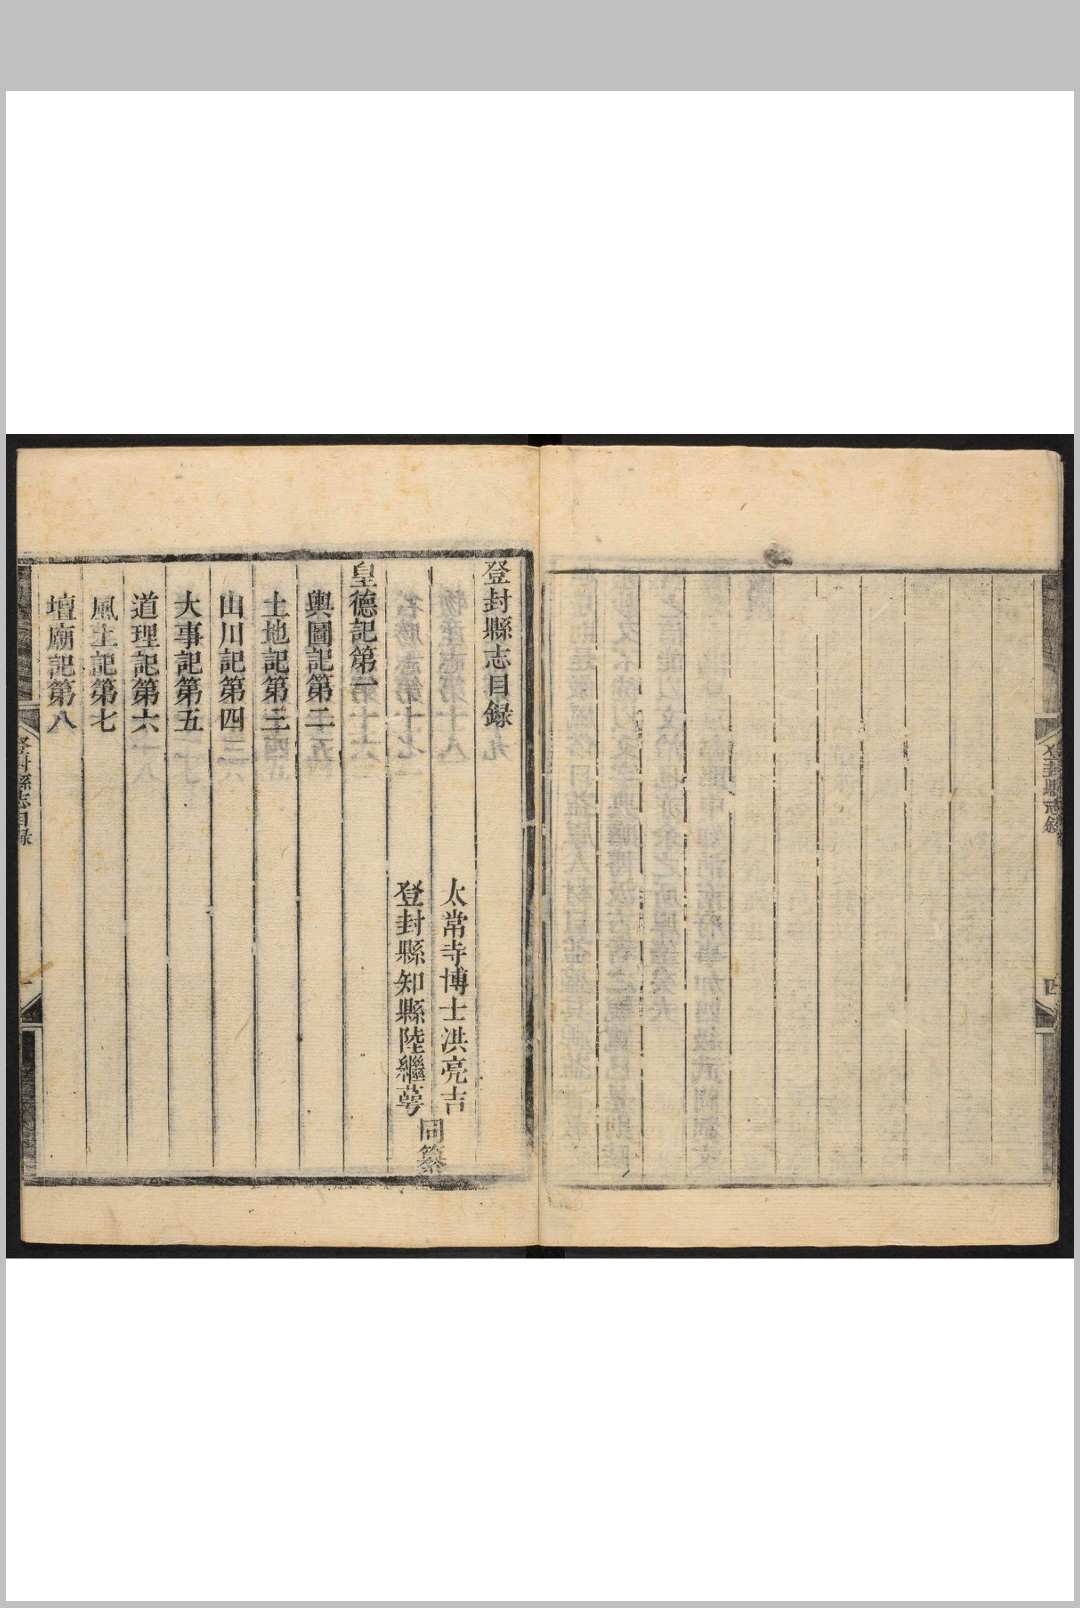 登封縣志目録
太常寺博士洪亮吉
登封縣知縣陸繼萼
同纂
皇德記第一
輿圖記第二
土地記第三
山川記第四
大事記第五
道理記第六
風土記第七
壇廟記第八
登封縣志目録
一
登封縣志敘
四